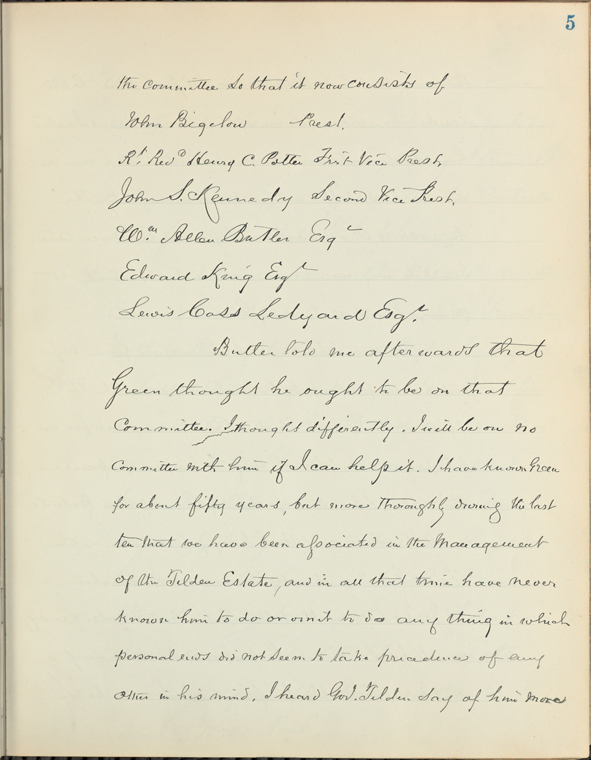 5
the committee so that it now consists of
John Bigelow Prest.
Rt. Revd Henry C. Potter First Vice Prest,
John S. Kennedy Second Vice Prest,
Wm Allen Butler Esqr
Edward King Esqr
Lewis Cass Ledyard Esqr.
Butler told me afterwards that
Green thought he ought to be on that
Committee. I thought differently. I will be on no
committee with him if I can help it. I have known Green
for about fifty years, but more thoroughly during the last
ten that we have been associated in the Management
of the Tilden Estate, and in all that time have never
known him to do or omit to do any thing in which
personal ends did not seem to take precedence of any
other in his mind. I heard Gov. Tilden say of him more